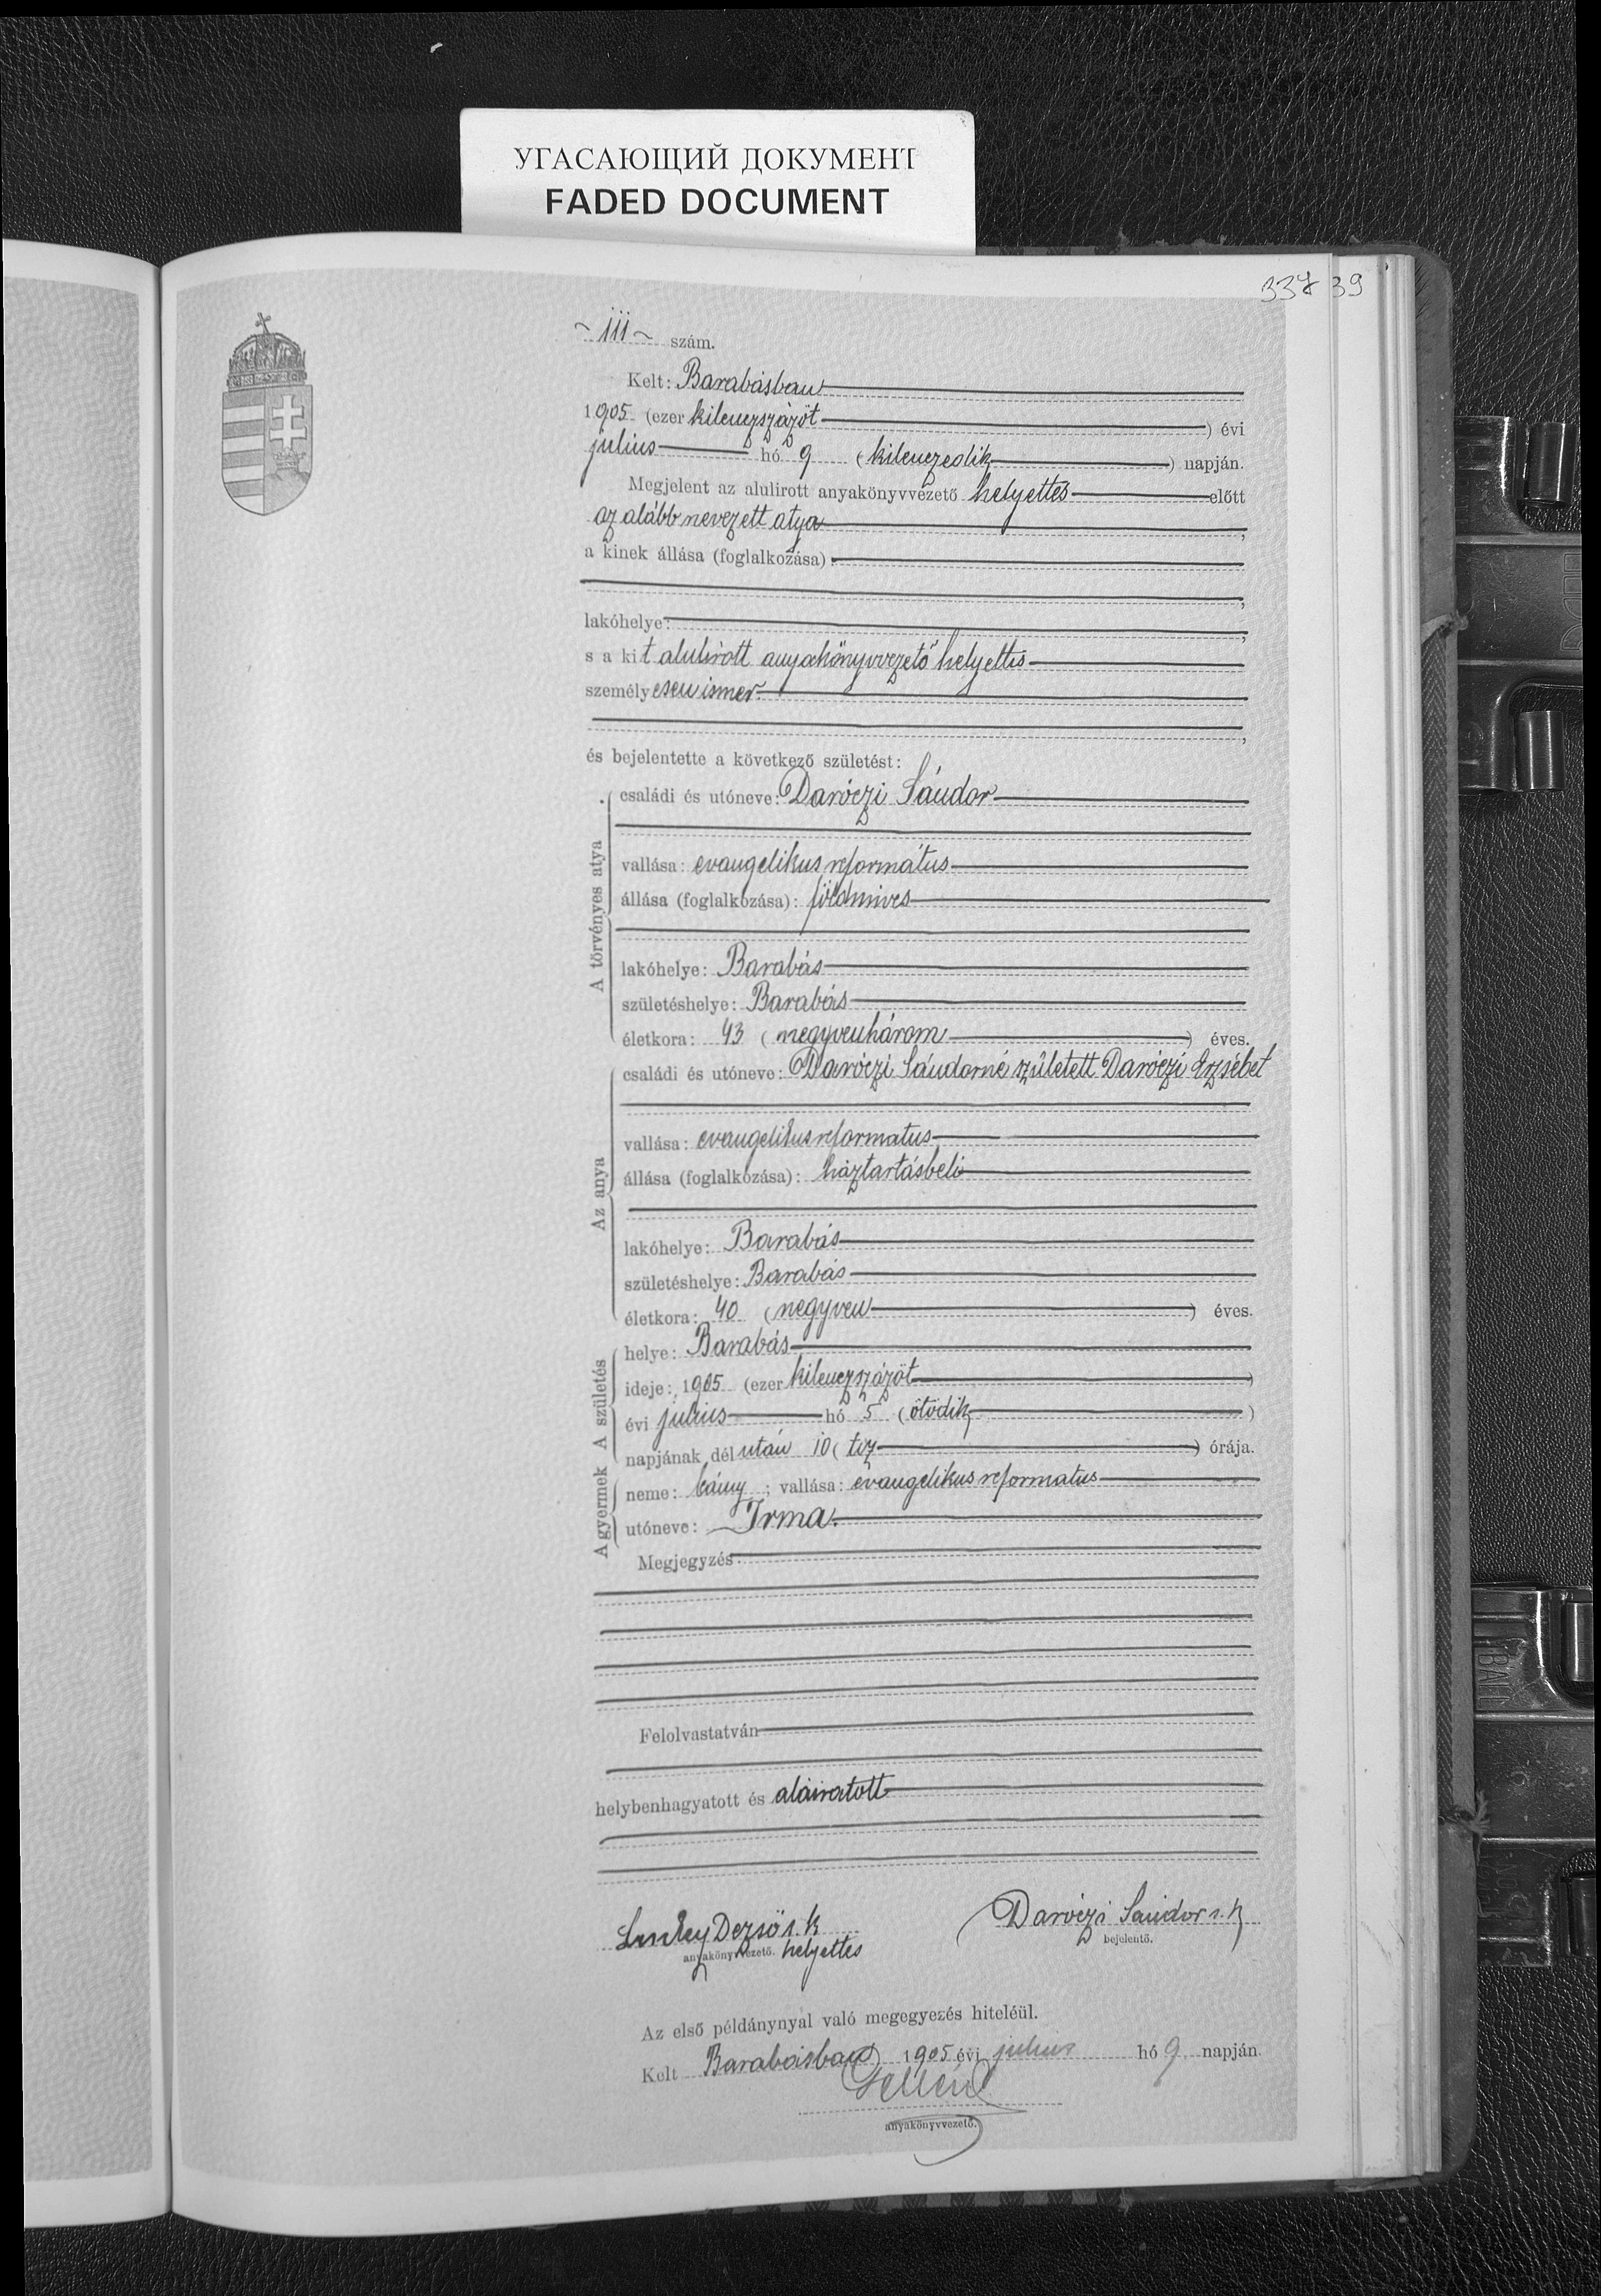 УГАСАЮЩИЙ ДОКУМЕНТ
FADED DOCUMENT
39
111 szám.
Kelt: Barabásban
1905 (ezer kilenczszázöt) évi
julius hó 9 (kilenczedik) napján.
Megjelent az alulirott anyakönyvvezető helyettes előtt
az alább nevezett atya,
a kinek állása (foglalkozása):
lakóhelye:
s a kit alulirott anyakönyvvezető helyettes
személyesen ismer.
és bejelentette a következő születést:
A törvényes atya
családi és utóneve: Daróczi Sándor
vallása: evangelikus református
állása (foglalkozása): földmives
lakóhelye: Barabás
születéshelye: Barabás
életkora: 43 (negyvenhárom) éves.
Az anya
családi és utóneve: Daróczi Sándorné született Daróczi Erzsébet
vallása: evangelikus reformatus
állása (foglalkozása): háztartásbeli
lakóhelye: Barabás
születéshelye: Barabás
életkora: 40 (negyven) éves.
A születés
helye: Barabás
ideje: 1905 (ezer kilenczszázöt)
évi julius hó 5 (ötödik)
napjának dél után 10 (tiz) órája.
A gyermek
neme: leány; vallása: evangelikus reformatus
utóneve: Irma.
Megjegyzés
Felolvastatván
helybenhagyatott és aláiratott
Dezső s. k
anyakönyvvezető. helyettes
Daróczi Sándor s. k
bejelentő.
Az első példánynyal való megegyezés hiteléül.
Kelt Barabásban 1905 évi julius hó 9 napján.
anyakönyvvezető.